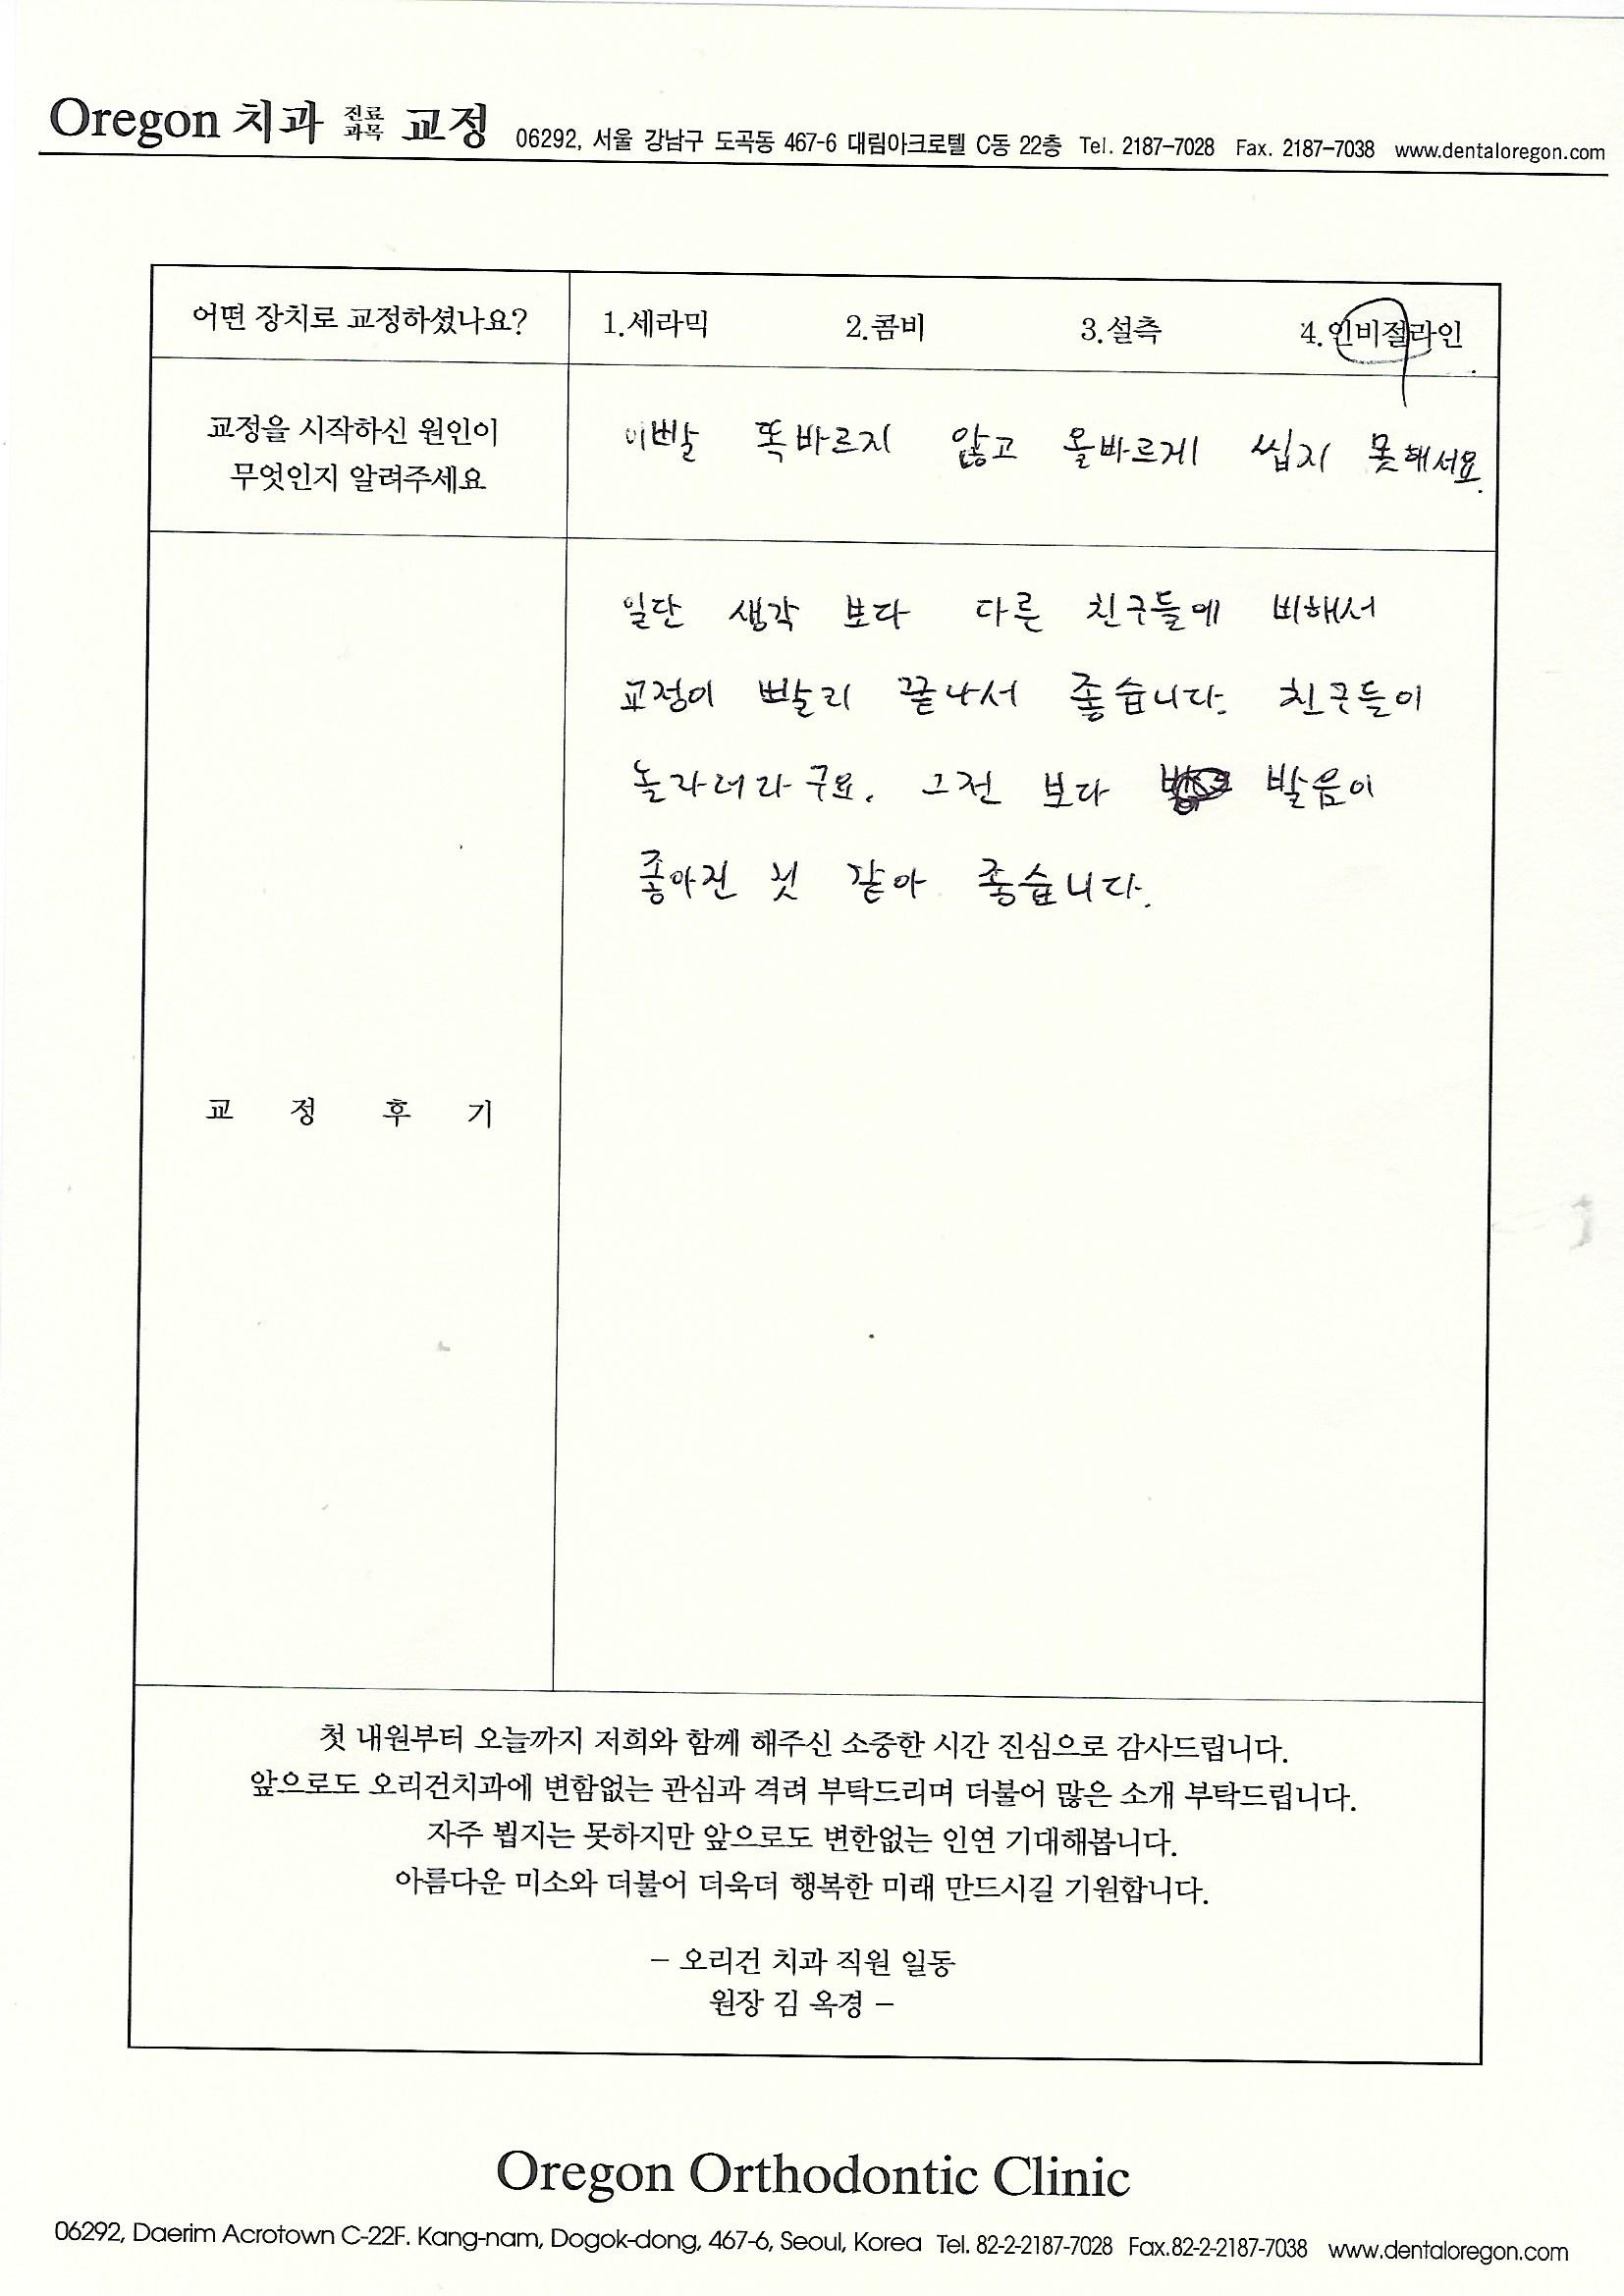 Oregon 치과 진료과목 교정 06292, 서울 강남구 도곡동 467-6 대림아크로텔 C동 22층 Tel. 2187-7028 Fax. 2187-7038 www.dentaloregon.com
어떤 장치로 교정하셨나요? 1.세라믹 2.콤비 3.설측 4.인비절라인
교정을 시작하신 원인이
무엇인지 알려주세요
이빨 똑바르지 않고 올바르게 씹지 못해서요.
일단 생각 보다 다른 친구들에 비해서
교정이 빨리 끝나서 좋습니다. 친구들이
놀라더라구요. 그전 보다 발음이
좋아진 것 같아 좋습니다.
교 정 후 기
첫 내원부터 오늘까지 저희와 함께 해주신 소중한 시간 진심으로 감사드립니다.
앞으로도 오리건치과에 변함없는 관심과 격려 부탁드리며 더불어 많은 소개 부탁드립니다.
자주 뵙지는 못하지만 앞으로도 변한없는 인연 기대해봅니다.
아름다운 미소와 더불어 더욱더 행복한 미래 만드시길 기원합니다.
– 오리건 치과 직원 일동
원장 김 옥경 –
Oregon Orthodontic Clinic
06292, Daerim Acrotown C-22F. Kang-nam, Dogok-dong, 467-6, Seoul, Korea Tel. 82-2-2187-7028 Fax.82-2-2187-7038 www.dentaloregon.com